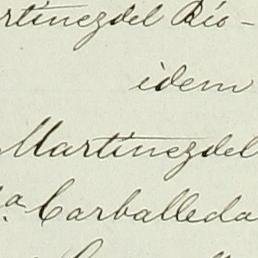 rtinezdel Rio -
idem
Martinezdel
a. Carballeda